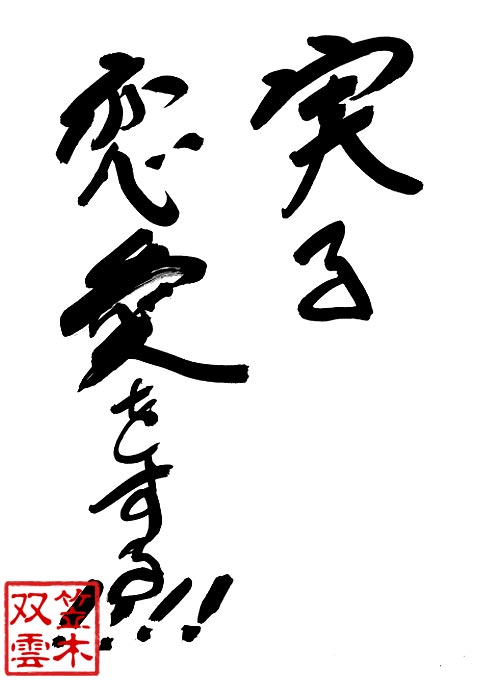 実る
恋愛をする!!!
笠木
双雲